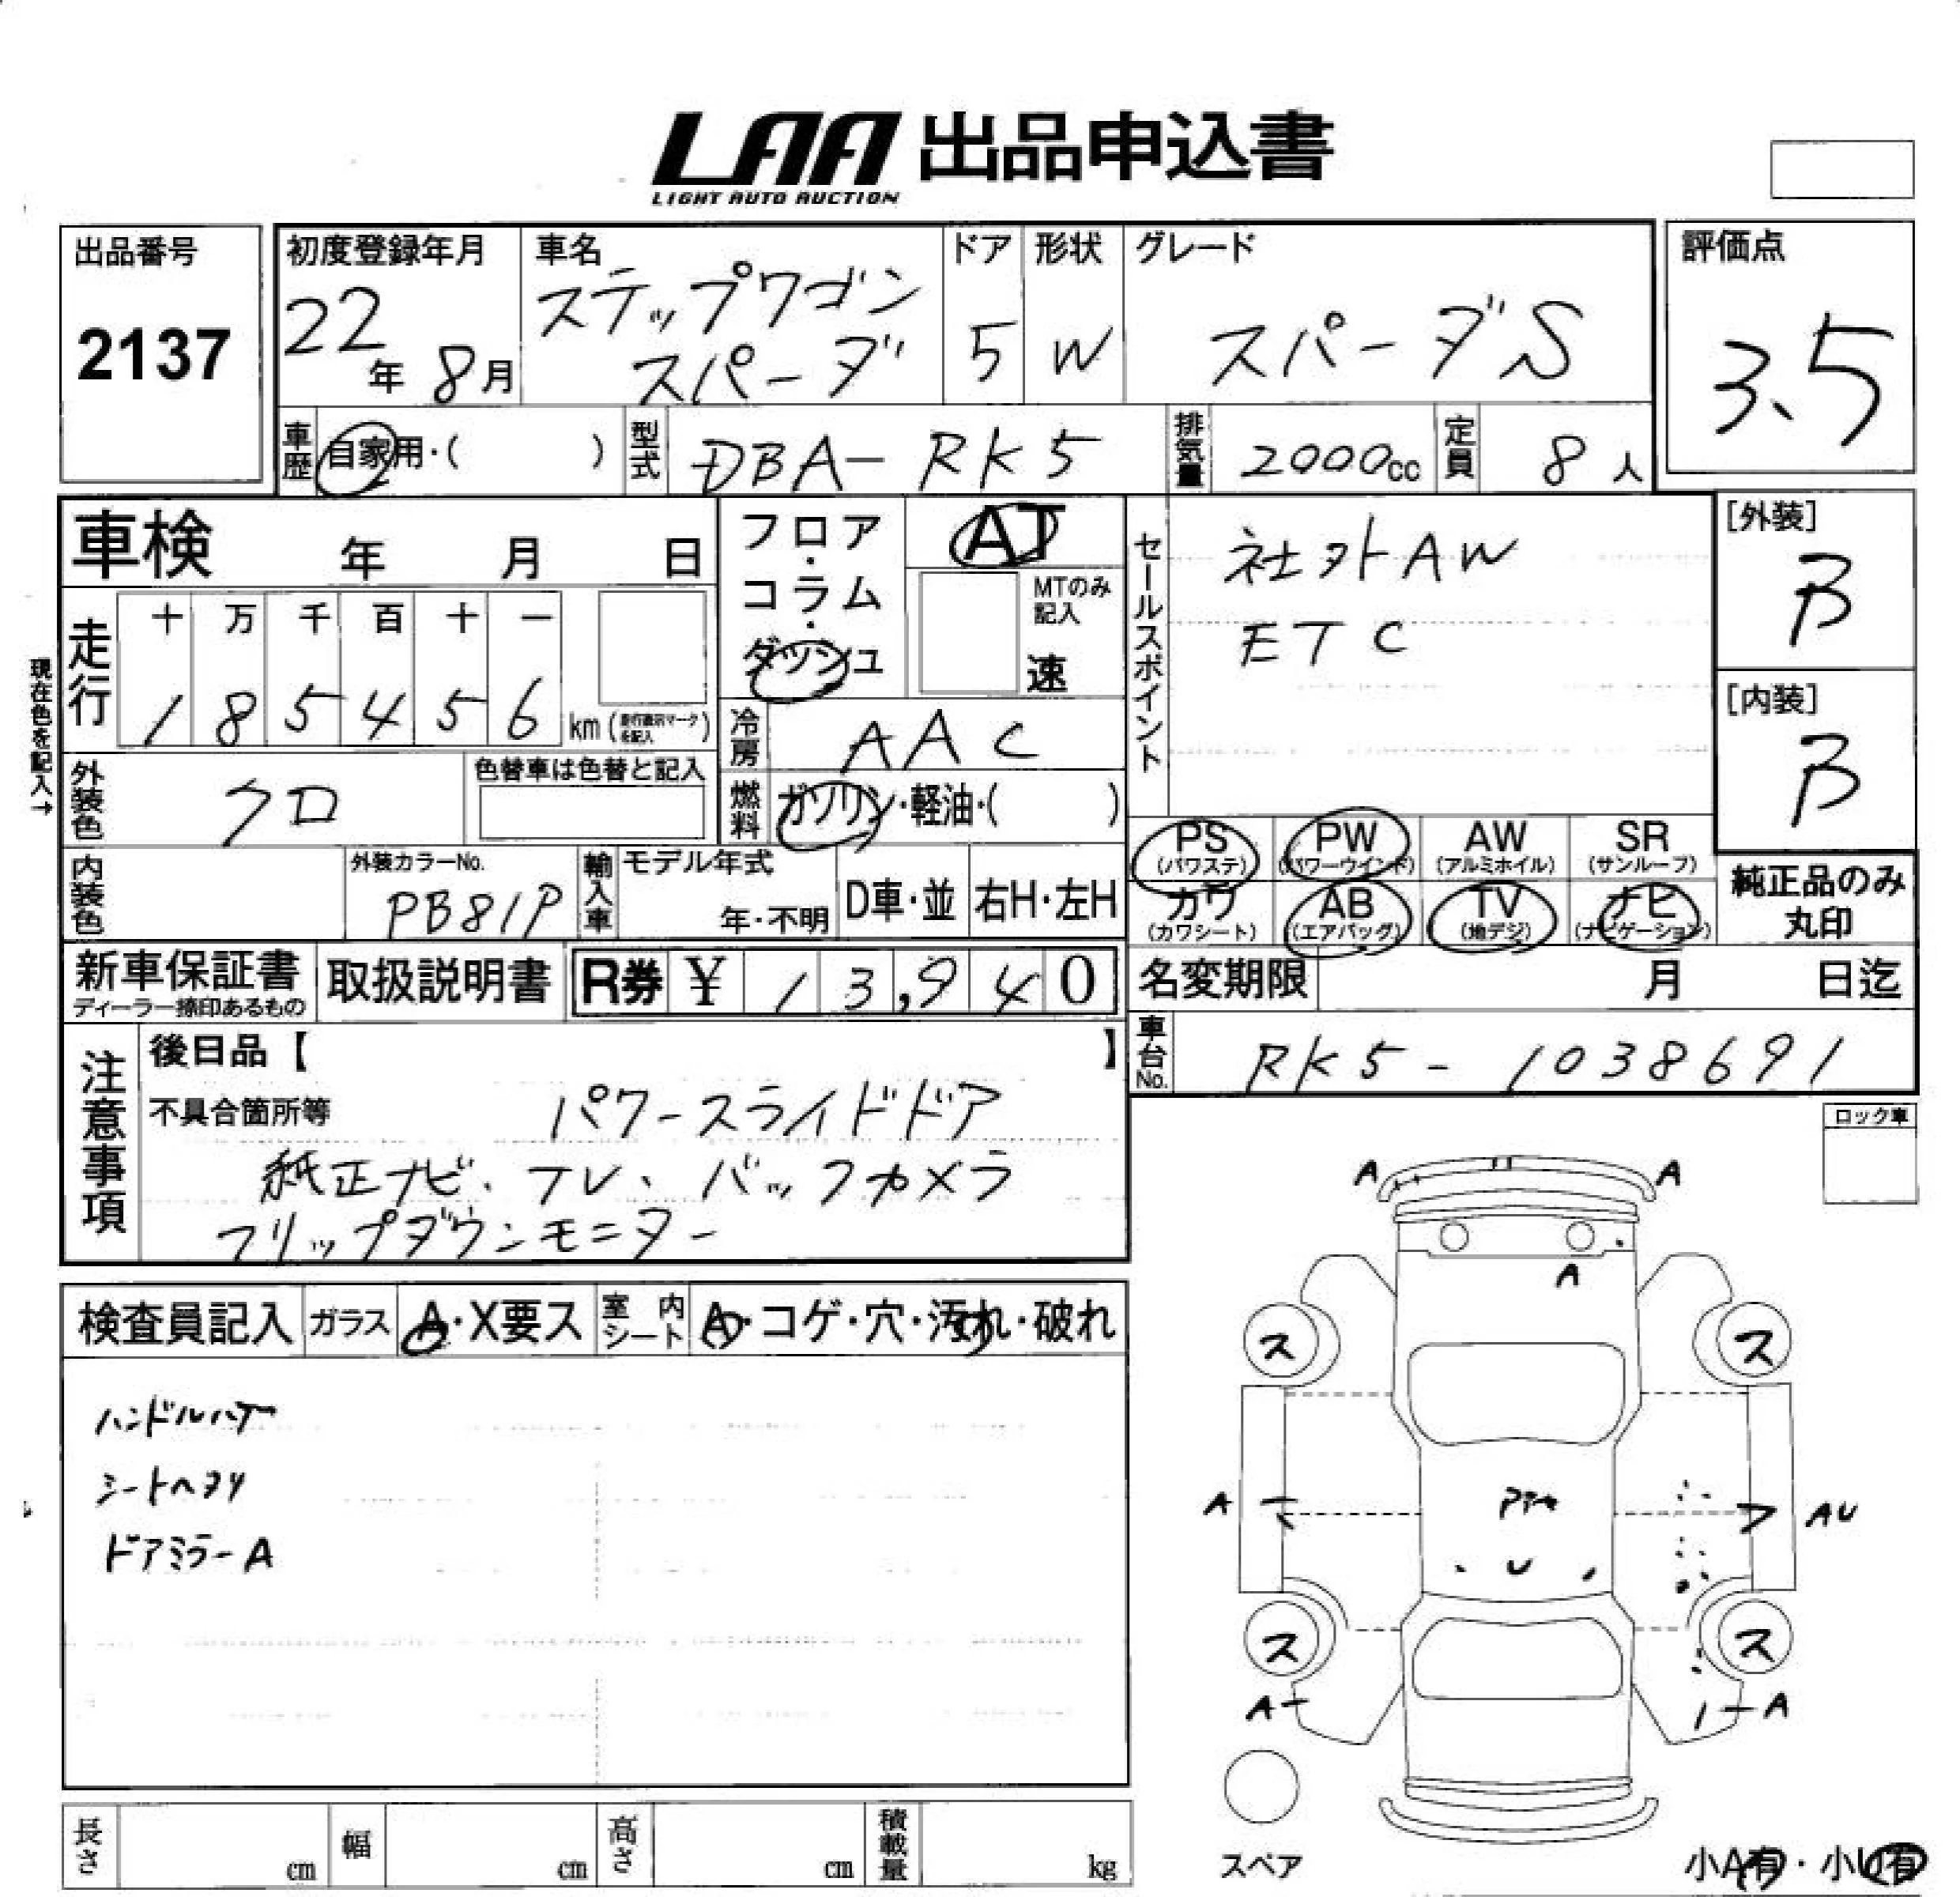 LAA 出品申込書
LIGHT AUTO AUCTION
出品番号
2137
初度登録年月
22年 8月
車名
ステップワゴン
スパーダ
ドア
5
形状
W
グレード
スパーダS
評価点
3.5
車歴
自家用・( )
型式
DBA-RK5
排気量
2000cc
定員
8人
車検 年 月 日
フロア
・
コラム
・
ダッシュ
AT
MTのみ
記入
速
セールスポイント
社外AW
ETC
[外装]
B
[内装]
B
現在色を記入→
走行
十 万 千 百 十 一
1 8 5 4 5 6 km (走行表示マークを記入)
冷房
AAC
外装色
クロ
色替車は色替と記入
燃料
ガソリン・軽油・( )
PS
(パワステ)
PW
(パワーウインド)
AW
(アルミホイル)
SR
(サンルーフ)
カワ
(カワシート)
AB
(エアバッグ)
TV
(地デジ)
ナビ
(ナビゲーション)
純正品のみ
丸印
内装色
外装カラーNo.
PB81P
輸入車
モデル年式
年・不明
D車・並
右H・左H
新車保証書
ディーラー捺印あるもの
取扱説明書
R券 ¥ 13,940
名変期限 月 日迄
車台No.
RK5-1038691
注意事項
後日品【 】
不具合箇所等
パワースライドドア
純正ナビ、テレ、バックカメラ
フリップダウンモニター
ロック車
検査員記入
ガラス
A・X要ス
室内シート
A・コゲ・穴・汚れ・破れ
ハンドルハゲ
シートヘタリ
ドアミラーA
A A
A
ス ス
A AU
U
ス ス
A A
スペア
長さ cm
幅 cm
高さ cm
積載量 kg
小A有・小U有